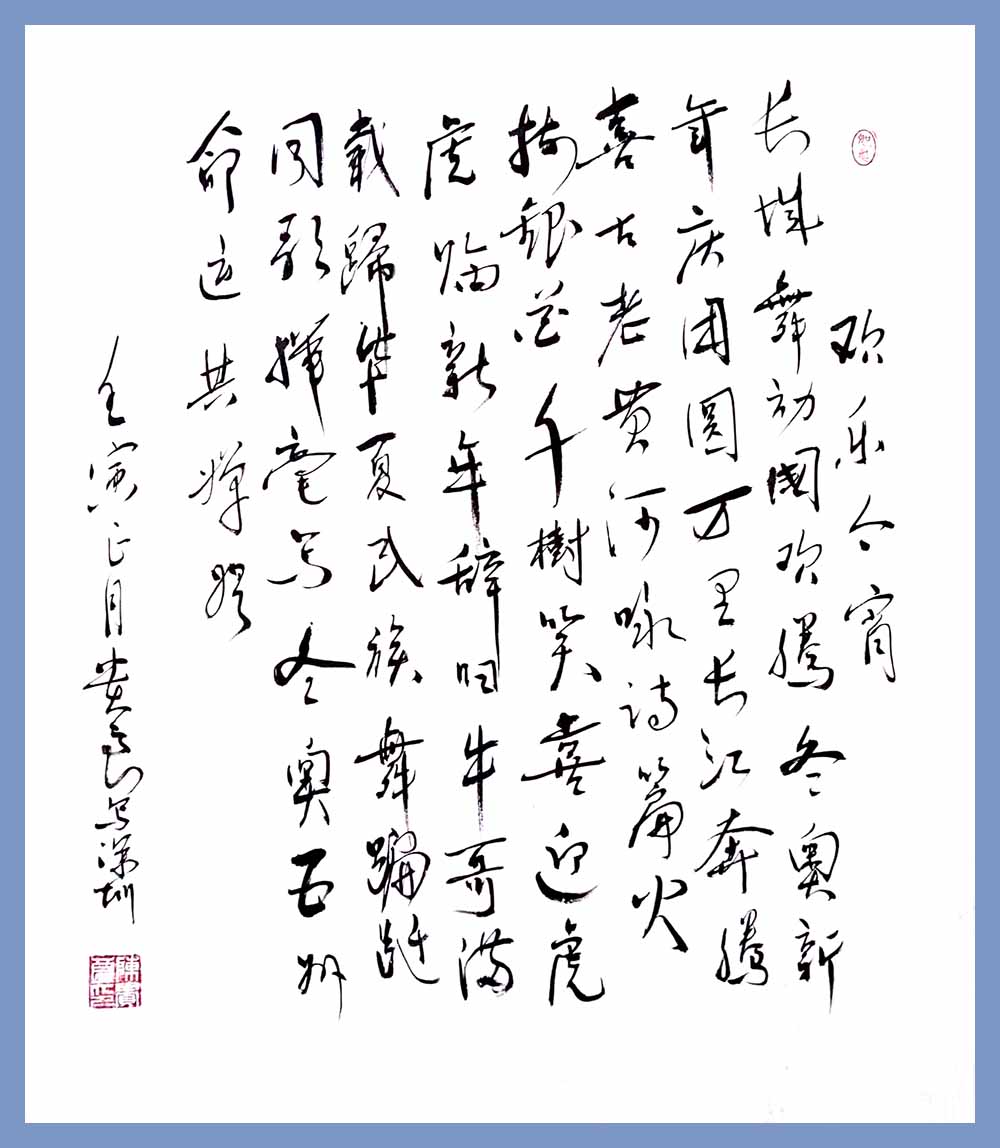 欢乐今宵
长城舞动國欢腾冬奥新
年庆团圆万里长江奔腾
喜古老黄河咏诗篇火
树银花千樹笑喜迎虎
虎临新年辞旧牛哥满
载歸华夏民族舞蹁跹
同歌挥毫写冬奥五州
命运共辉煌
壬寅正月贵良写深圳
陳貴良印